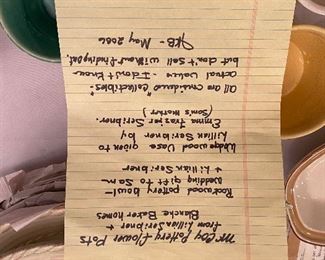 McCoy Pottery + Flower Pots
from Lillian Scribner +
Blanche Baker homes
Rookwood pottery bowl -
Wedding gift to Sam
+ Lillian Scribner
Wedgwood Vase given to
Lillian Scribner by
Emma Frasier Scribner.
(Sam's mother)
All are considered "collectibles"-
actual values - I don't know
but don't sell without finding out.
JKB - May 2006